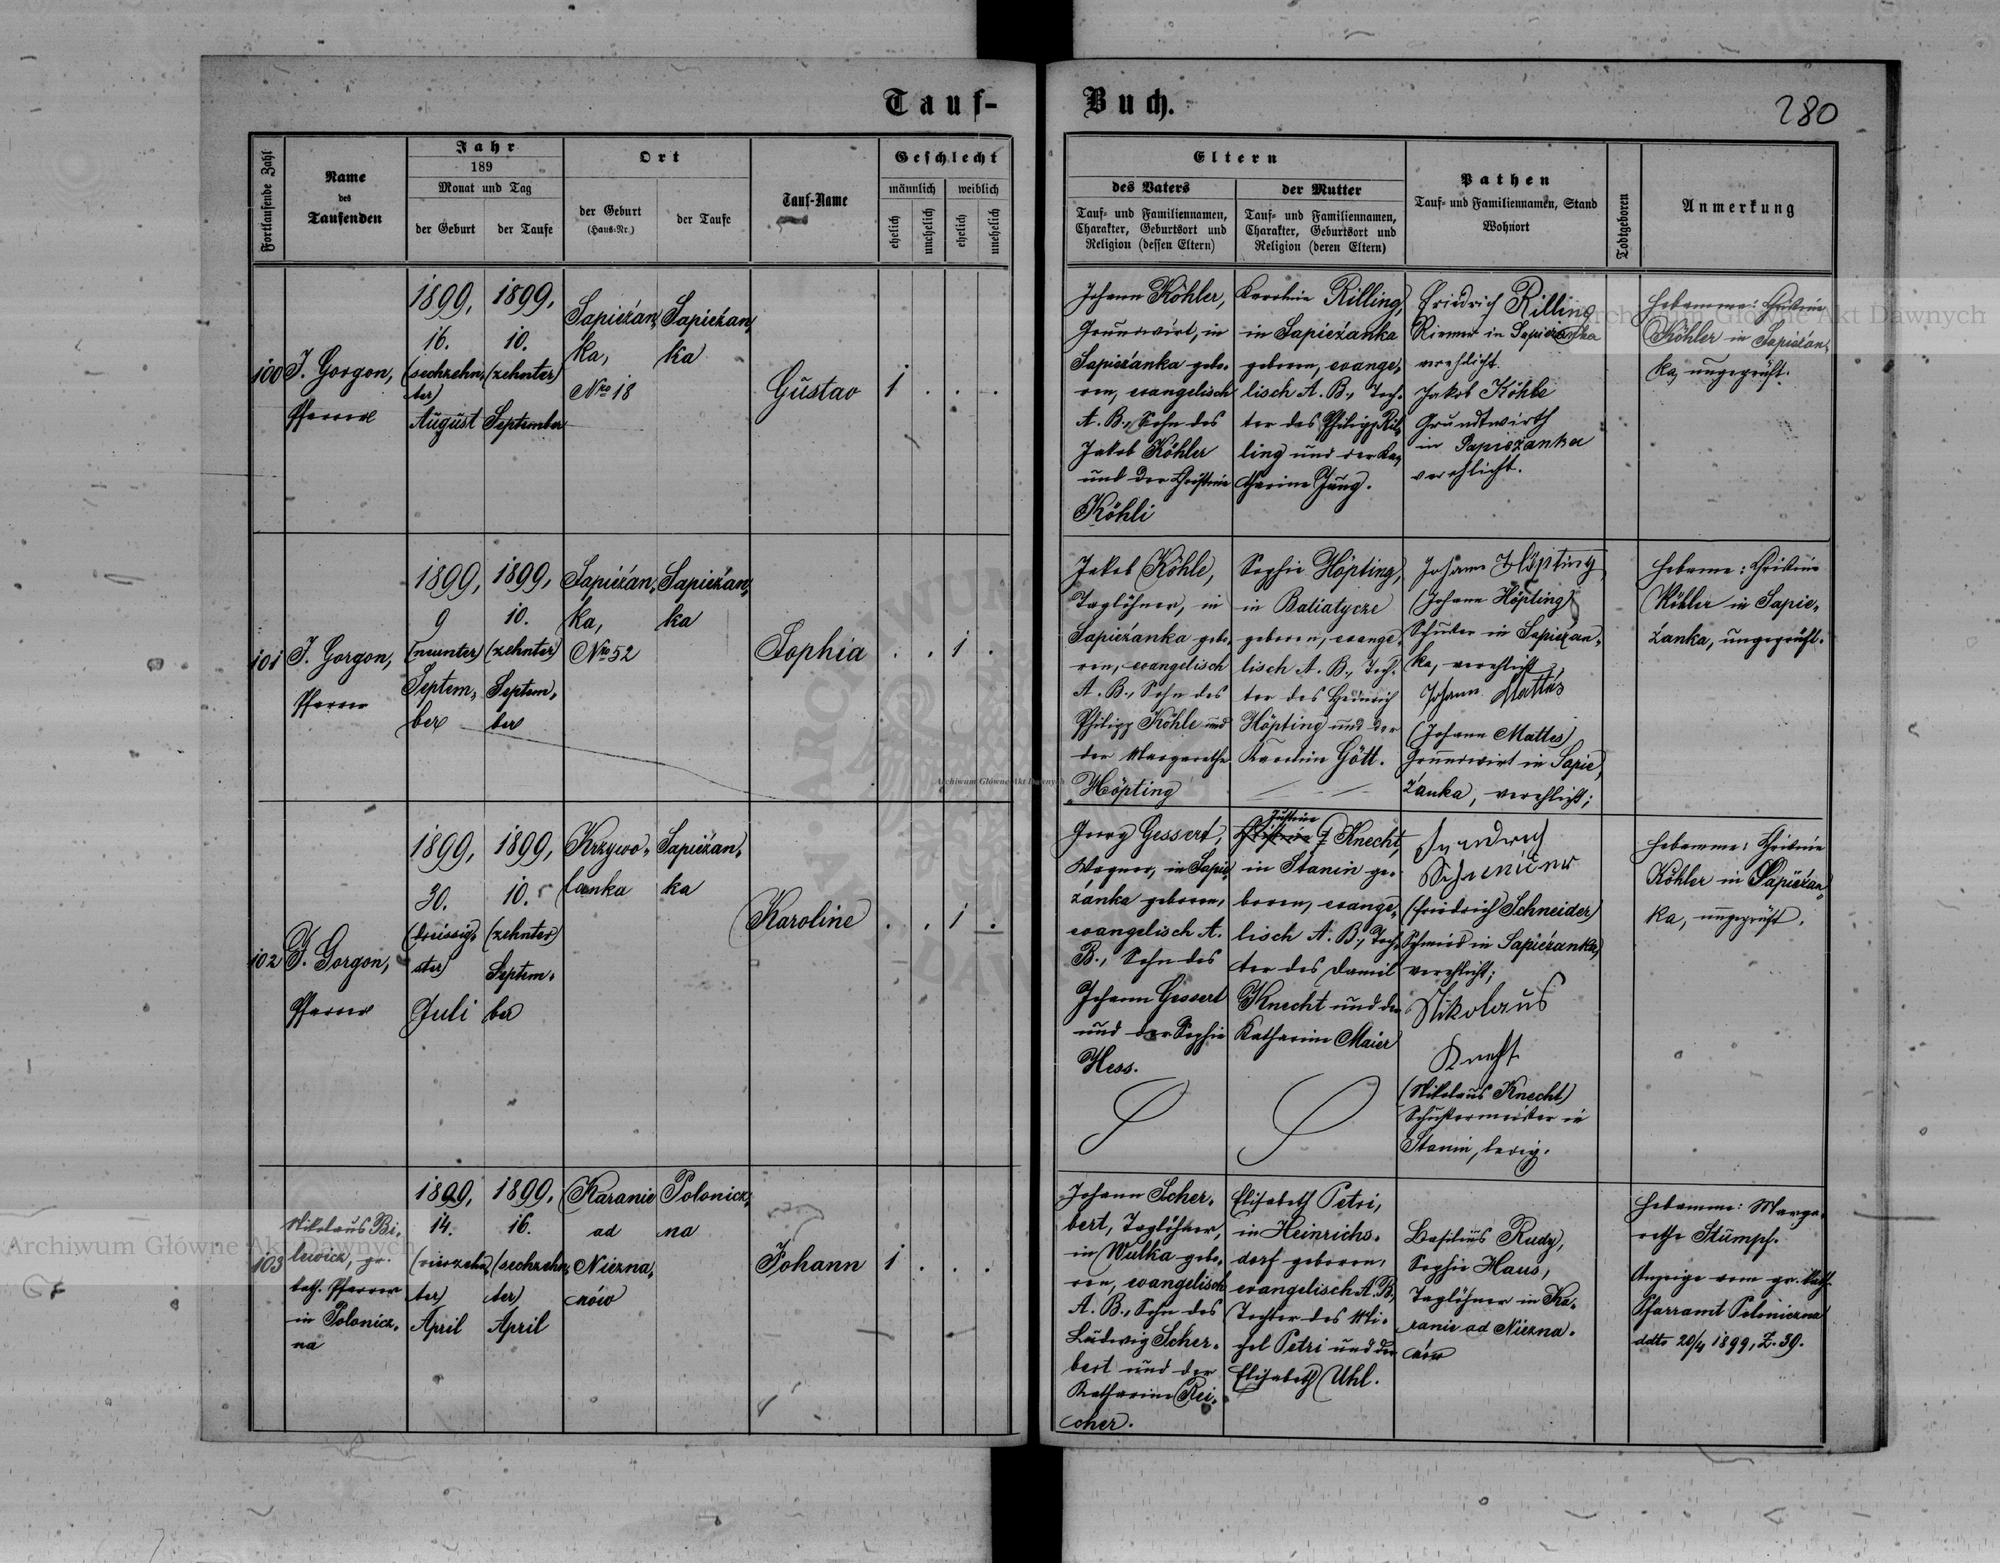 Tauf-
Buch.
280
Fortlaufende Zahl
Name
des
Taufenden
Jahr
189
Monat und Tag
der Geburt
der Taufe
Ort
der Geburt
(Haus-Nr.)
der Taufe
Tauf-Name
Geschlecht
männlich
weiblich
ehelich
unehelich
ehelich
unehelich
Eltern
des Vaters
Tauf- und Familiennamen,
Charakter, Geburtsort und
Religion (dessen Eltern)
der Mutter
Tauf- und Familiennamen,
Charakter, Geburtsort und
Religion (deren Eltern)
Pathen
Tauf- und Familiennamen, Stand
Wohnort
Todtgeboren
Anmerkung
100
J. Gorgon,
Pfarrer
1899,
16.
(sechzehn-
ter)
August
1899,
10.
(zehnter)
September
Sapieżan-
ka,
Nro 18
Sapieżan-
ka
Gustav
1 . . .
Johann Köhler,
Grundwirt, in
Sapieżanka gebo-
ren, evangelisch
A. B., Sohn des
Jakob Köhler
und der Christine
Köhli
Karolina Rilling,
in Sapieżanka
geboren, evange-
lisch A. B., Toch-
ter des Philipp Ril-
ling und der Ka-
tharina Jung.
Friedrich Rilling
Riemer in Sapieżanka
verehlicht.
Jakob Köhle
Grundtwirth
in Sapieżanka
verehlicht.
Hebamme: Christine
Köhler in Sapieżan-
ka, ungeprüft.
101
J. Gorgon,
Pfarrer
1899,
9
(neunter)
Septem-
ber
1899,
10.
(zehnter)
Septem-
ber
Sapieżan-
ka,
Nro 52
Sapieżan-
ka
Sophia
. . 1 .
Jakob Köhle,
Taglöhner, in
Sapieżanka gebo-
ren, evangelisch
A. B., Sohn des
Philipp Köhle und
der Margarethe
Höpting
Sophie Höpting,
in Batiatycze
geboren, evange-
lisch A. B., Toch-
ter des Heinrich
Höpting und der
Karolina Gött.
Johann Höpting
(Johann Höpting)
in Sapieżan-
ka, verehlicht,
Johann Mattes
(Johann Mattes)
Grundwirt in Sapie-
żanka, verehlicht;
Hebamme: Christine
Köhler in Sapie-
żanka, ungeprüft.
102
J. Gorgon,
Pfarrer
1899,
30.
(dreissig-
ster)
Juli
1899,
10.
(zehnter)
Septem-
ber
Krzywo-
łanka
Sapieżan-
ka
Karoline
. . 1 .
Georg Gessert,
Wagner, in Sapie-
żanka geboren,
evangelisch A.
B., Sohn des
Johann Gessert
und der Sophie
Hess.
Justine
Knecht,
in Stanin ge-
boren, evange-
lisch A. B., Toch-
ter des Daniel
Knecht und der
Katharina Maier
(Friedrich Schneider)
Schmied in Sapieżanka,
verehlicht;
Nikolaus
Knecht
(Nikolaus Knecht)
Schustermeister in
Stanin, ledig.
Hebamme: Christine
Köhler in Sapieżan-
ka, ungeprüft.
103
Nikolaus Bi-
lewicz, gr.
kath. Pfarrer
in Polonicz-
na
1899,
14.
(vierzehn-
ter)
April
1899,
16.
(sechzehn-
ter)
April
Karanie
ad
Niezna-
nów
Polonicz-
na
Johann
1 . . .
Johann Scher-
bert, Taglöhner,
in Wulka gebo-
ren, evangelisch
A. B., Sohn des
Ludwig Scher-
bert und der
Katharina Rei-
cher.
Elisabeth Petri,
in Heinrichs-
dorf geboren,
evangelisch A. B.,
Tochter des Mi-
chel Petri und der
Elisabeth Uhl.
Basilius Rudy,
Sophie Haus,
Taglöhner in Ka-
ranie ad Niezna-
nów
Hebamme: Marga-
rethe Stumpf.
Anzeige vom gr. kath.
Pfarramt Poloniczna
ddto 20/4 1899, Z. 39.
Archiwum Główne Akt Dawnych
Archiwum Główne Akt Dawnych
Archiwum Główne Akt Dawnych